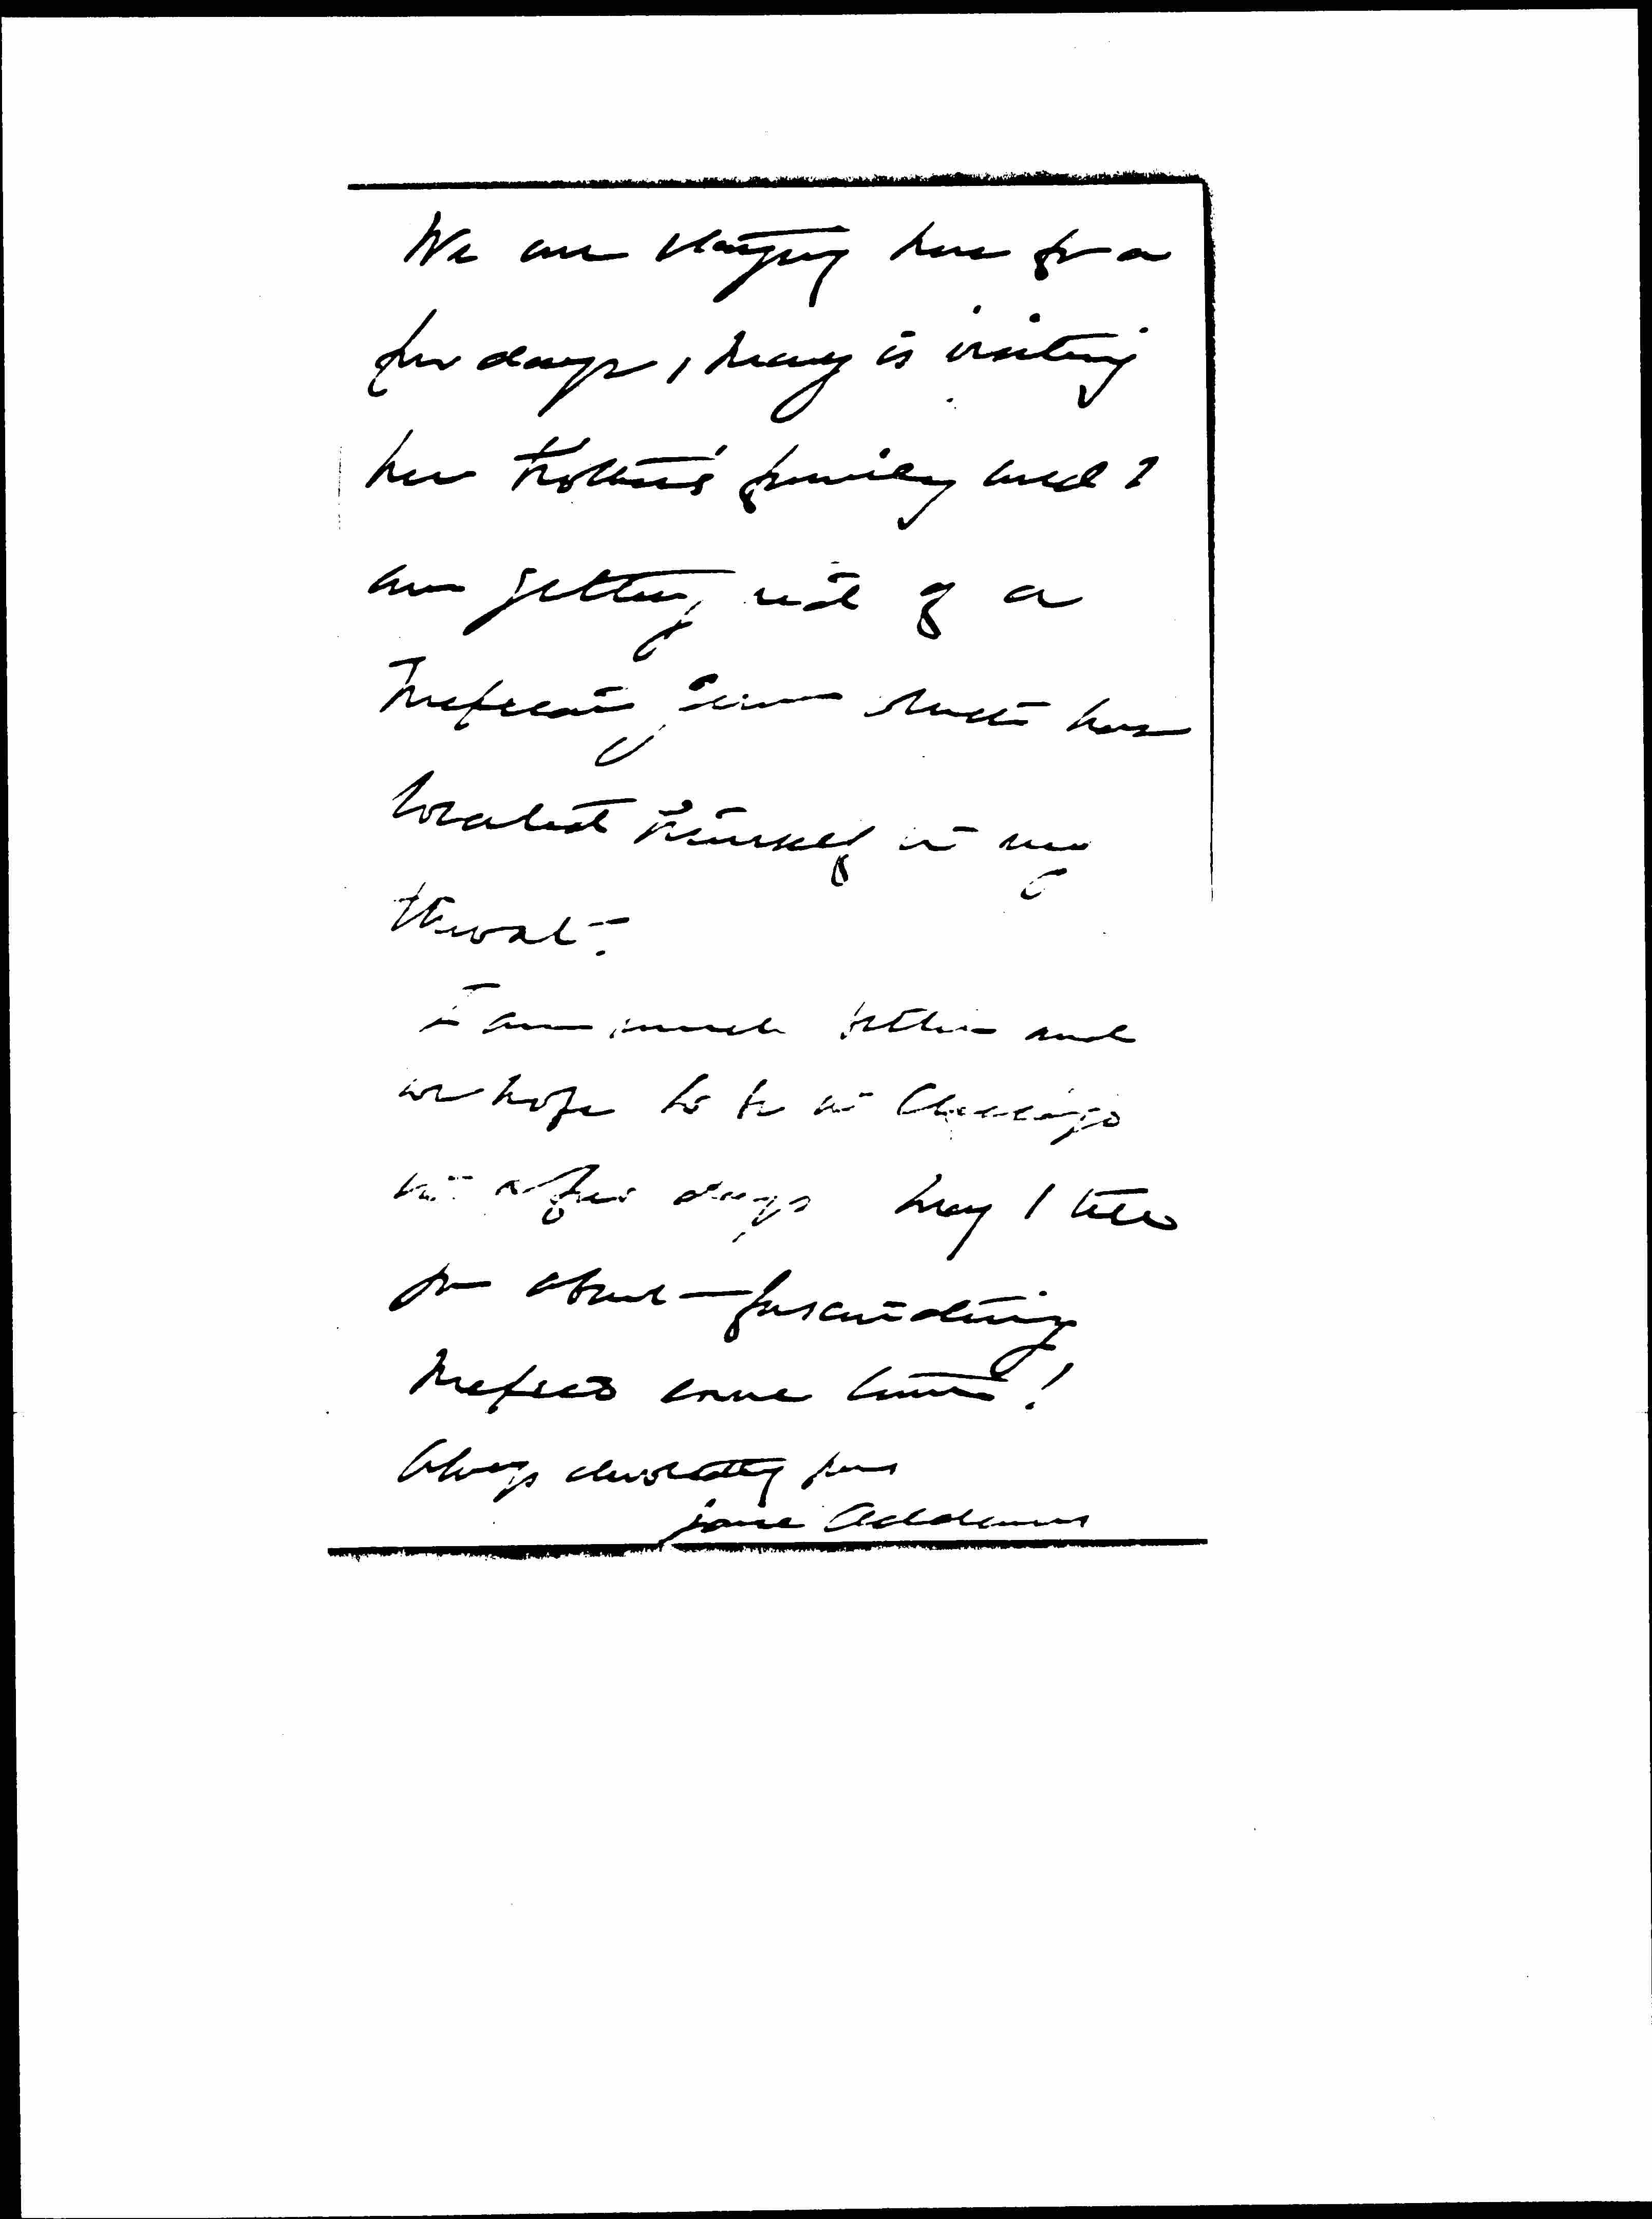 We are staying here for a
few days, Mary is visiting
her brother's family and I
am getting rid of a
tropical germ which has
located himself in my
throat.
I am much better and
we hope to be in Chicago
in a few days May I tell
you about fascinating
tropics some time!
Always devotedly yours
Jane Addams